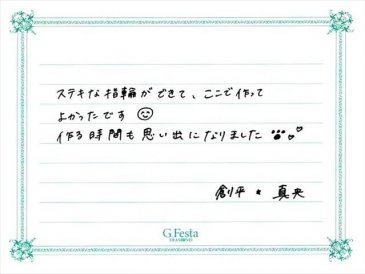 ステキな指輪ができて、ここで作って
よかったです
作る時間も思い出になりました
創平 * 真央
G.Festa